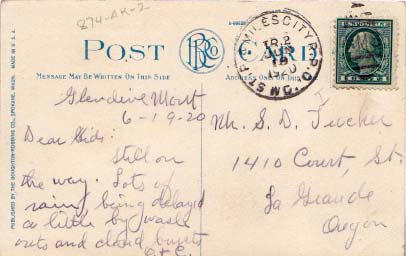 874-AR-2
MADE IN U.S.A.
POST CARD
BRCO
MESSAGE MAY BE WRITTEN ON THIS SIDE
ADDRESS ONLY ON THIS SIDE
PUBLISHED BY THE BROUGHTON-ROBBINS CO., SPOKANE, WASH.
MILES CITY R.P.O.
TR. 2
1920
1
Glendive Mont
6-19-20
Dear Kids:
Still on
the way. Lots of
rain, being delayed
a little by wash
outs and cloud bursts
Mr. S. D. Tucker
1410 Court, St.
La Grande
Oregon